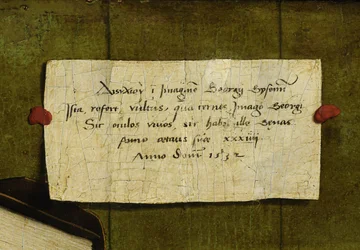 Δισίχιοv ī Imaginē Georgij Gysenij
Ista refert vultus, quā cernis, Imago Georgi
Sic oculos vivos, sic habet ille genas
Anno ætatis suæ xxxiiij
Anno dom̄ 1532